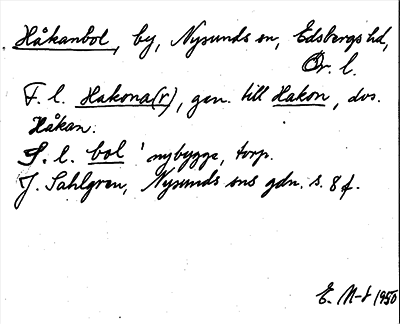 Håkanbol, by, Nysunds sn, Edsbergs hd,
Ör. l.
F. l. Hakona(r), gen. till Hakon, dvs.
Håkan.
S. l. bol 'nybygge, torp.
J. Sahlgren, Nysunds sns gdn. s. 8 f.
E. M-t 1950